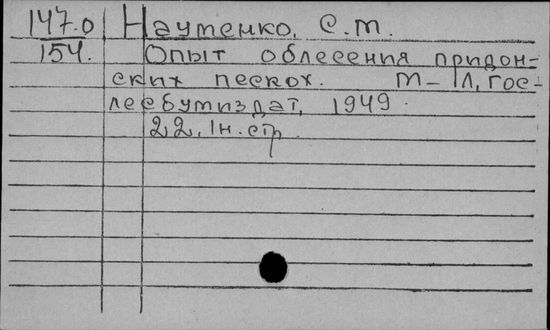 147.0 Наутенко, С. М.
154. Опыт облесения придон=
ских песках. М-Л, Гос-
лесбумиздат, 1949.
22, 1н. стр